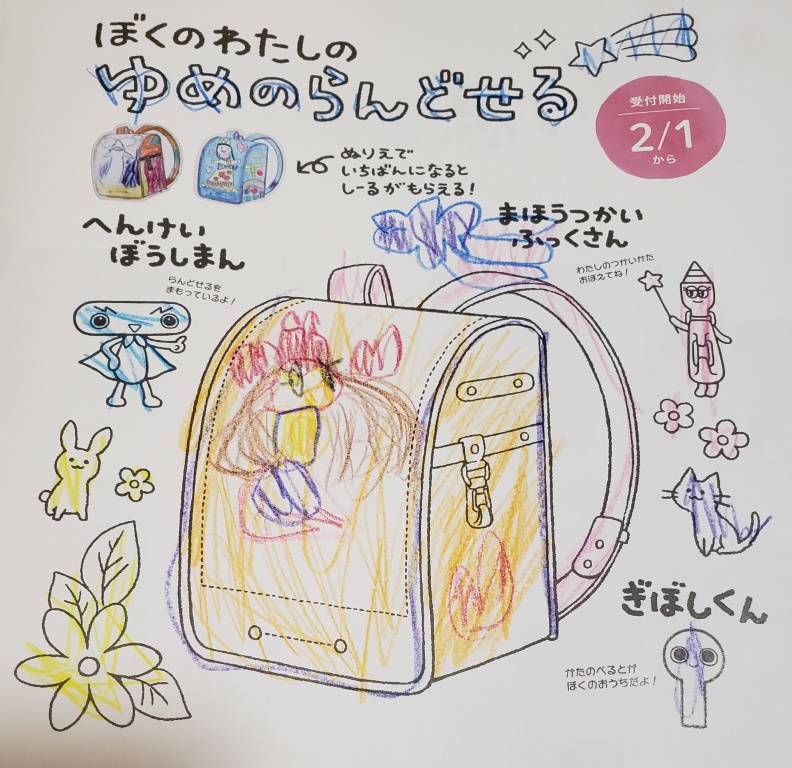 ぼくのわたしの
ゆめのらんどせる
受付開始
2/1
から
ぬりえで
いちばんになると
しーるがもらえる!
へんけい
ぼうしまん
らんどせるを
まもっているよ!
まほうつかい
ふっくさん
わたしのつかいかた
おぼえてね!
ぎぼしくん
かたのべるとが
ぼくのおうちだよ!